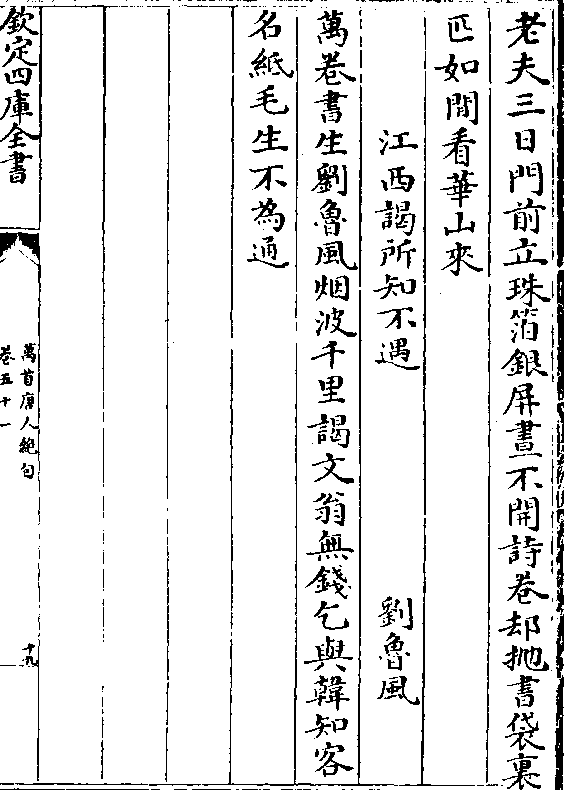 老夫三日門前立珠箔銀屏晝不開詩卷却抛書袋裏
匹如閒看華山來
江西謁所知不遇　劉魯風
萬卷書生劉魯風烟波千里謁文翁無錢乞與韓知客
名紙毛生不為通
欽定四庫全書
萬首唐人絶句
卷五十一
十九